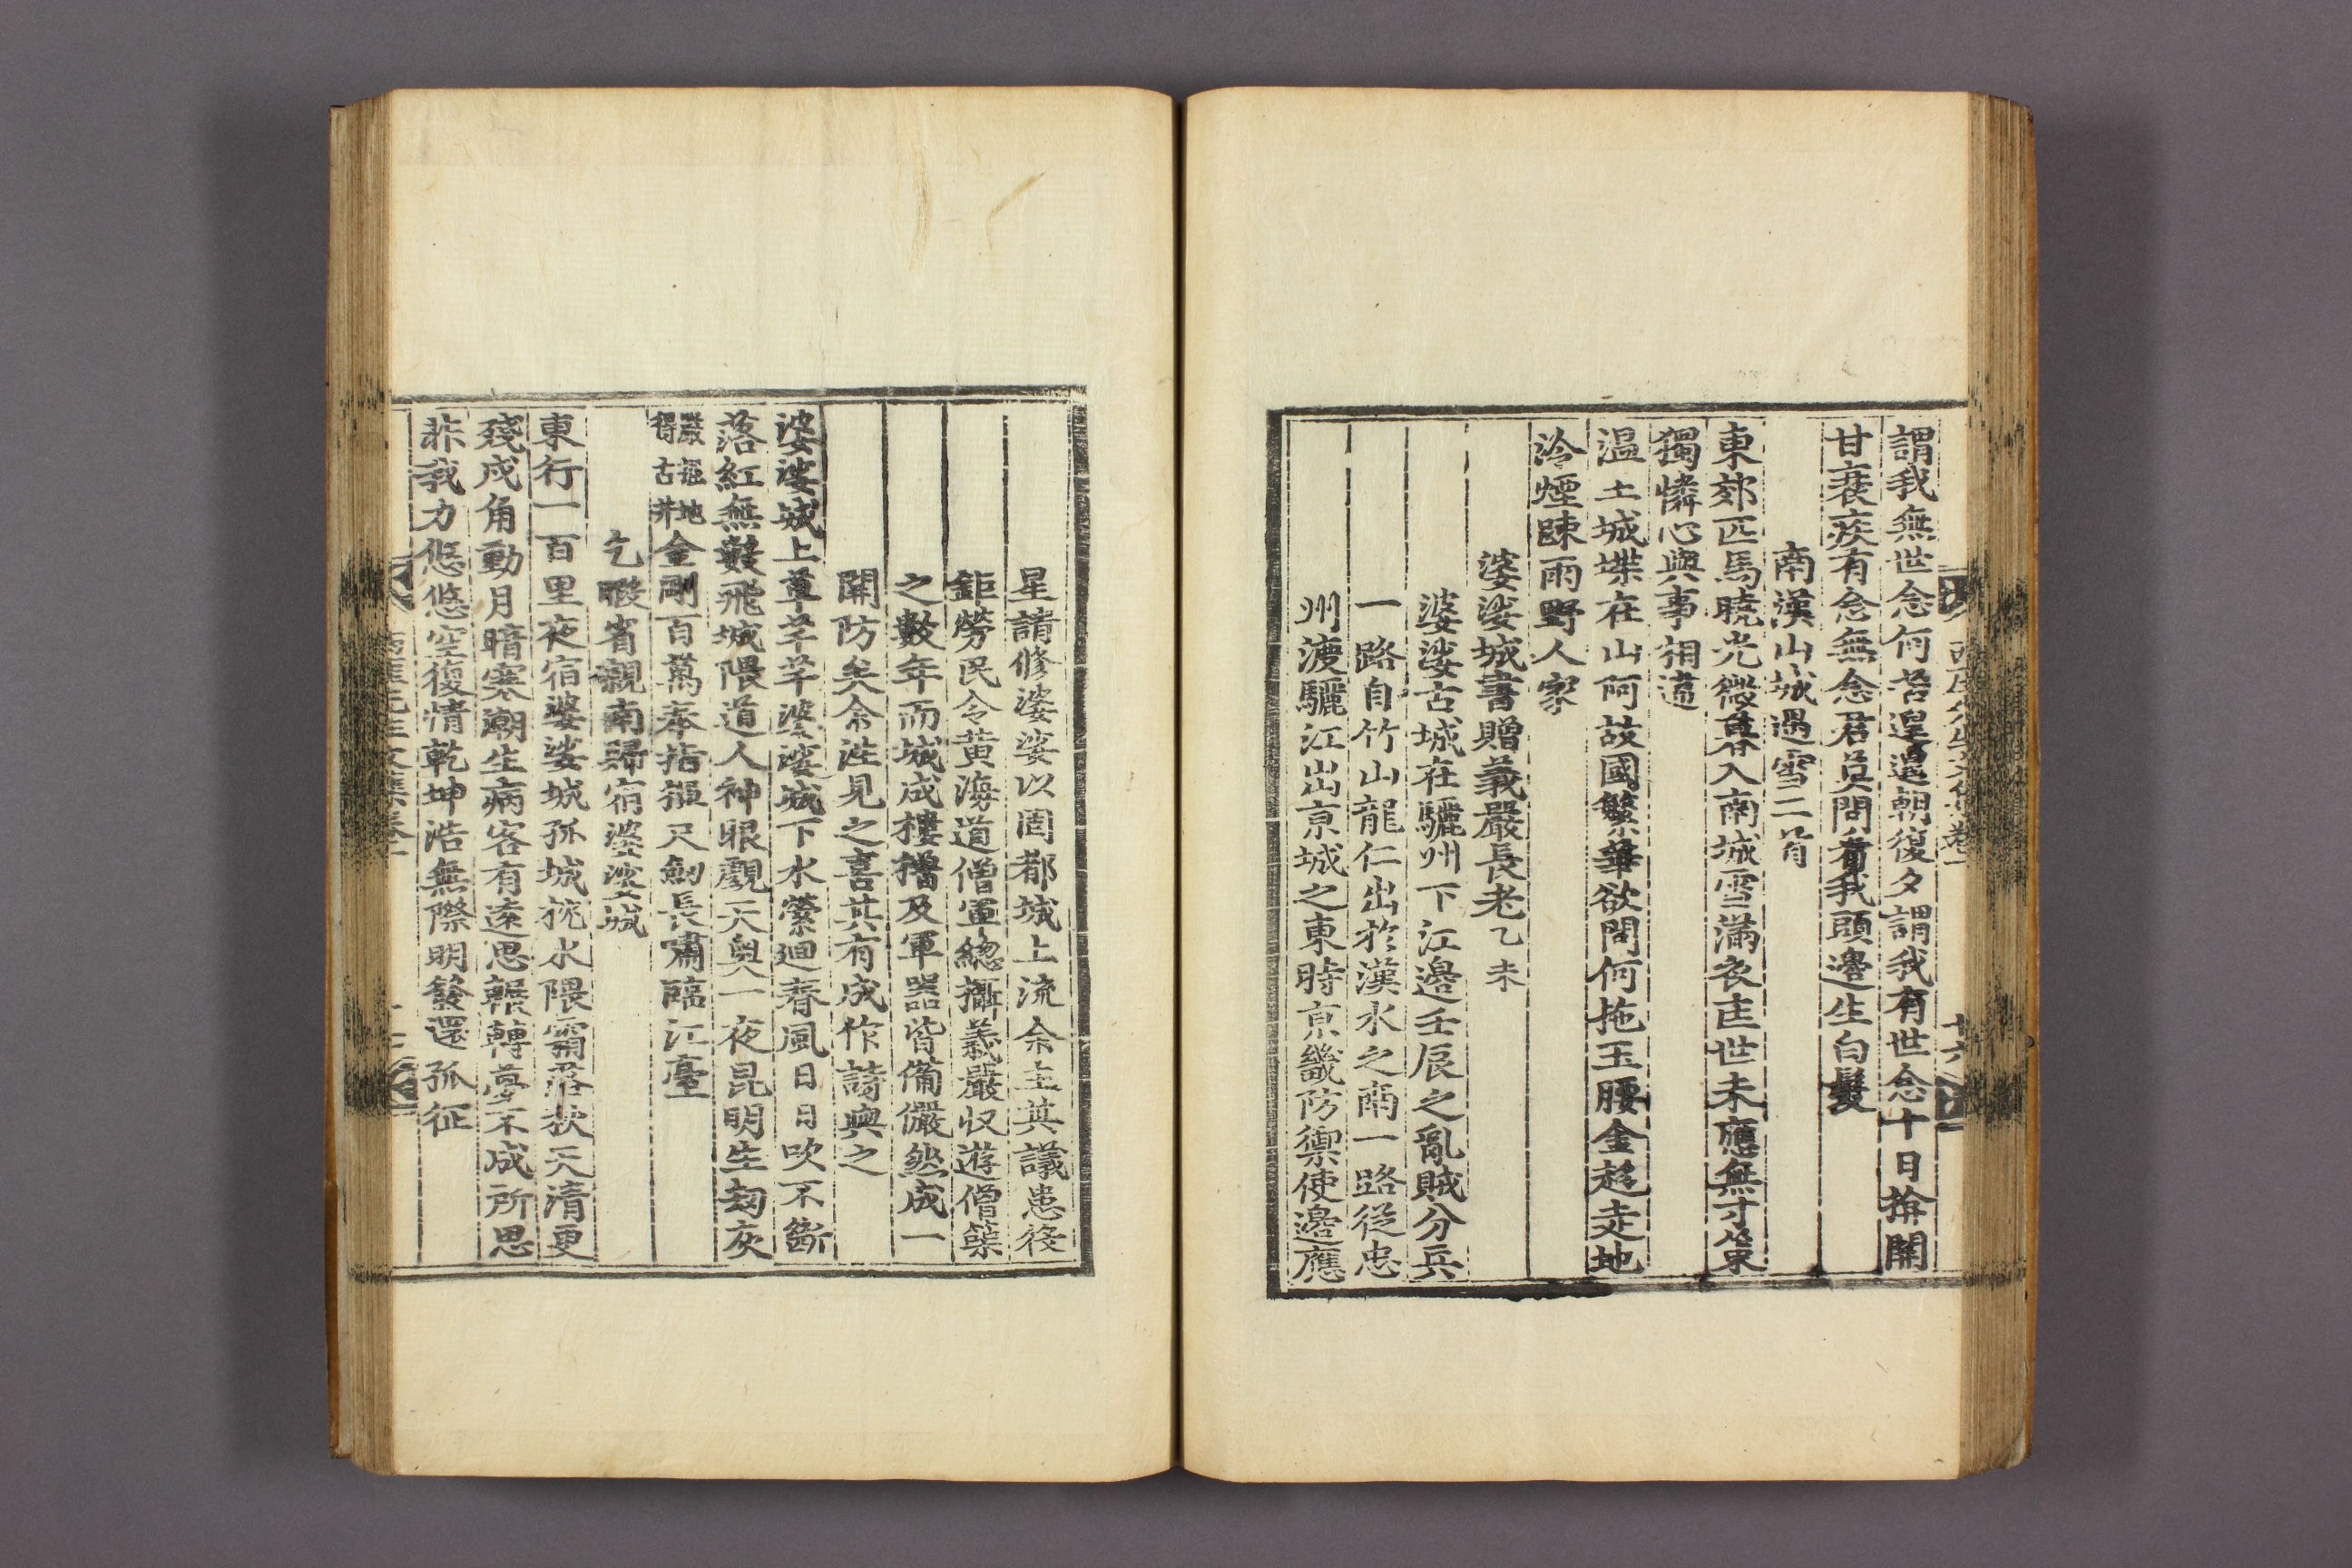 西厓先生文集卷一
十六
謂我無世念何苦遑遑朝復夕謂我有世念十日揜關
甘衰疾有念無念君莫問看我頭邊生白髮
南漢山城遇雪二首
東郊匹馬曉光微暮入南城雪滿衣匡世未應無寸策
獨憐心與事相違
溫王城堞在山阿故國繁華欲問何拖玉腰金趍走地
冷煙踈雨野人家
婆娑城書贈義嚴長老乙未
婆娑古城在驪州下江邊壬辰之亂賊分兵
一路自竹山龍仁出於漢水之南一路從忠
州渡驪江出京城之東時京畿防禦使邊應
星請修婆娑以固都城上流余主其議患役
鉅勞民令黃海道僧軍緫攝義嚴収遊僧築
之數年而城成樓櫓及軍器皆備儼然成一
關防矣余往見之喜其有成作詩與之
婆娑城上草芊芊婆娑城下水縈迴春風日日吹不斷
落紅無數飛城隈道人神眼覷天奧一夜昆明生刼灰
嚴掘地得古井金剛百萬奉指揮尺劒長嘯臨江臺
乞暇省親南歸宿婆娑城
東行一百里夜宿婆娑城孤城枕水隈霜落秋天淸更
殘戍角動月暗寒潮生病客有遠思輾轉夢不成所思
非我力悠悠空復情乾坤浩無際明發還孤征
西厓先生文集卷一